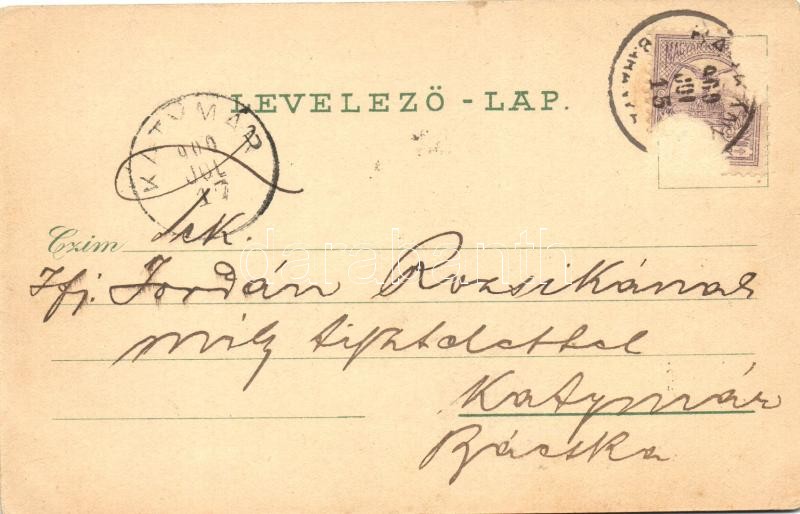 LEVELEZŐ - LAP.
KATYMÁR
900
JUL
17
MAGYAR
900
JUL
15
Czim
Ifj. Jordán Rozsikának
mély tisztelettel
Katymár
Bácska
darabanth